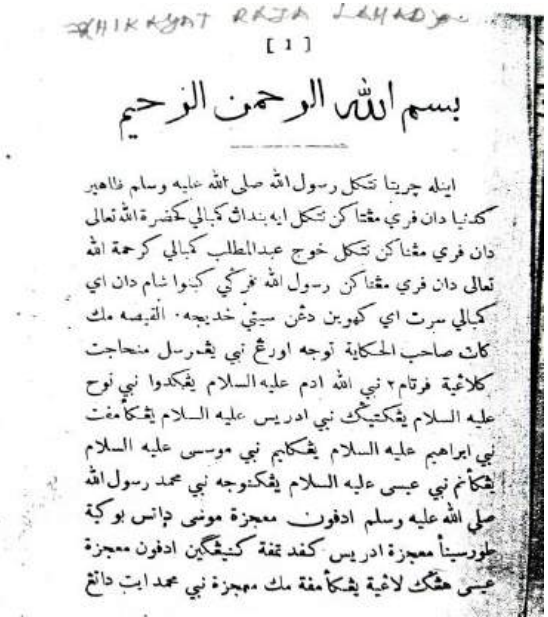 HIKAYAT RAJA LAHAD
[ 1 ]
بسم الله الرحمن الرحيم
اينله چريتا تتكل رسول الله صلى الله عليه وسلم ظاهير
كدنيا دان فري مڠتاكن تتكل ايه بندات كمبالي كحضرة الله تعالى
دان فري مڠتاكن تتكل خوج عبدالمطلب كمبالي كرحمة الله
تعالى دان فري مڠتاكن رسول الله ڤركي كبنوا شام دان اي
كمبالي سرت اي كهوين دڠن سيتي خديجه. القيصه مك
كات صاحب الحكاية توجه اورڠ نبي يڠمرسل
كلاڠية فرتام٢ نبي الله ادم عليه السلام يڠكدوا نبي نوح
عليه السلام يڠكتيݢ نبي ادريس عليه السلام يڠكأمفت
نبي ابراهيم عليه السلام يڠكليم نبي موسى عليه السلام
يڠكأنم نبي عيسى عليه السلام يڠكتوجه نبي محمد رسول الله
صلى الله عليه وسلم ادفون معجزة موسى دانس بوكية
طورسينأ معجزة ادريس كفد تمفة كتيڠݢين ادفون معجزة
عيسى هڠݢ لاڠية يڠكأمفة مك معجزة نبي محمد ايت داتڠ